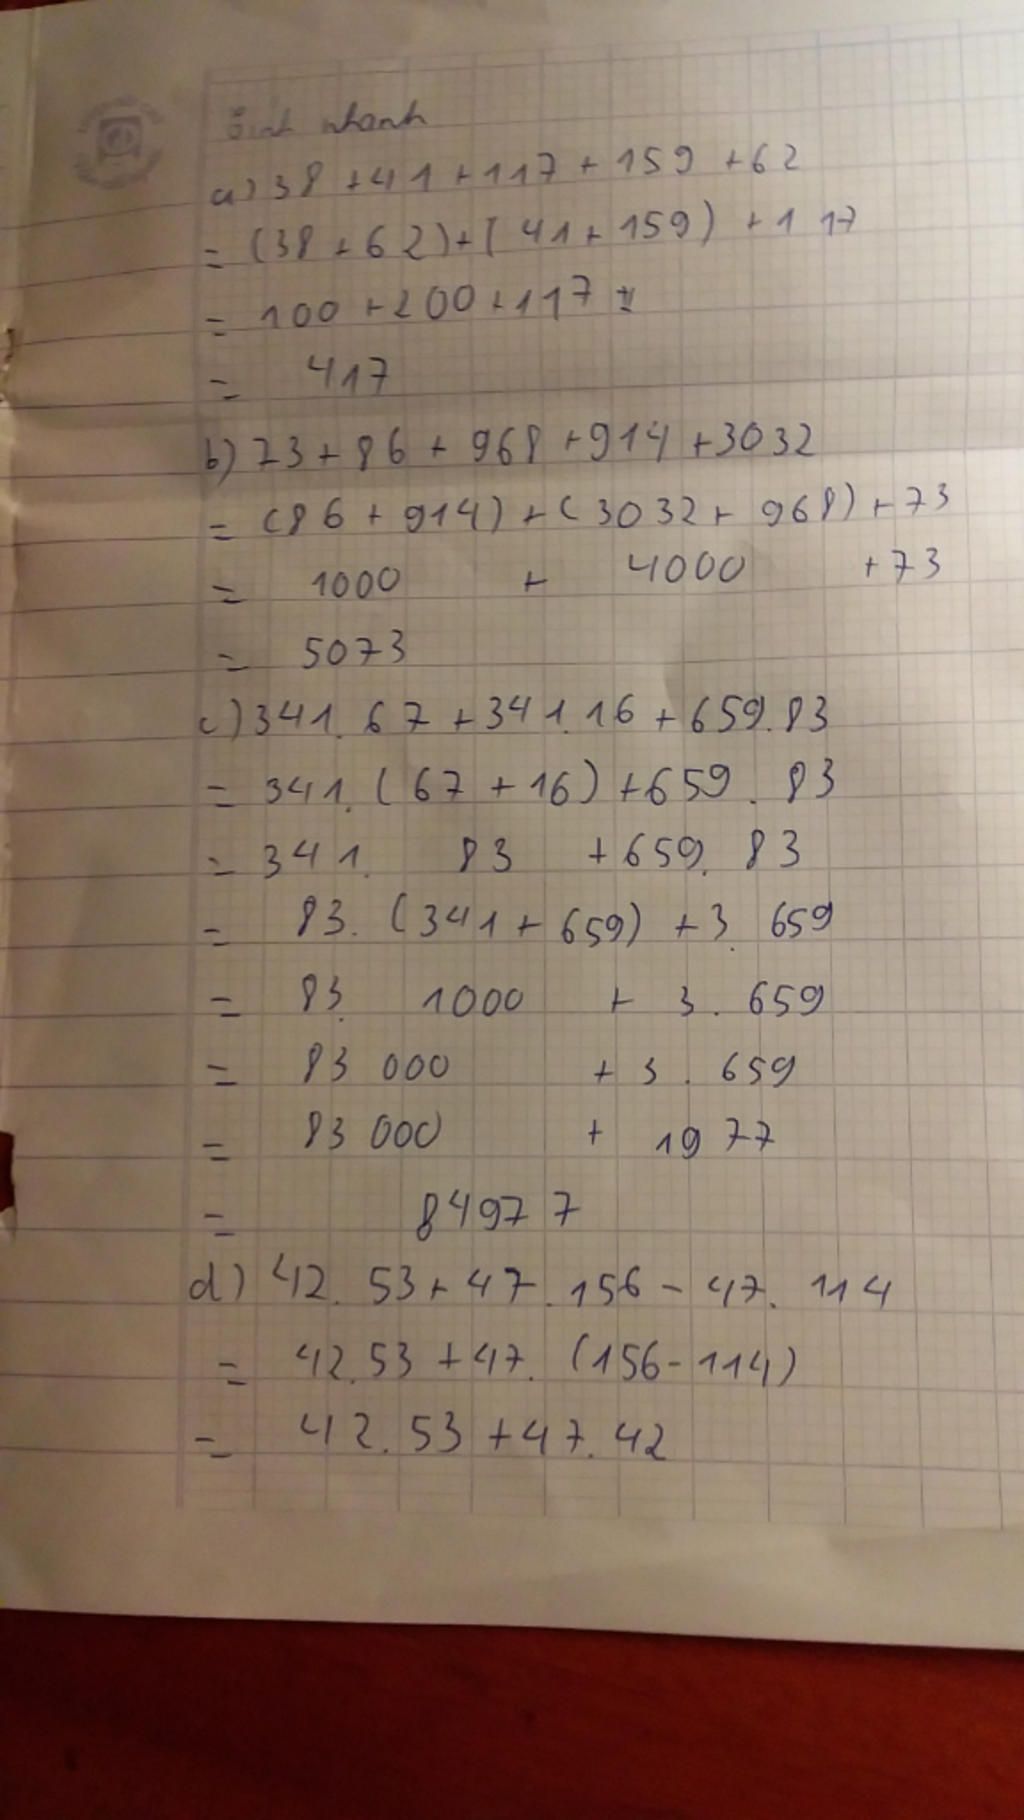 Tính nhanh
a) 38 + 41 + 117 + 159 + 62
= (38 + 62) + (41 + 159) + 117
= 100 + 200 + 117
= 417
b) 73 + 86 + 968 + 914 + 3032
= (86 + 914) + (3032 + 968) + 73
= 1000 + 4000 + 73
= 5073
c) 341. 67 + 341. 16 + 659. 83
= 341. (67 + 16) + 659. 83
= 341. 83 + 659. 83
= 83. (341 + 659) + 3. 659
= 83. 1000 + 3. 659
= 83 000 + 3. 659
= 83 000 + 1977
= 84977
d) 42. 53 + 47. 156 - 47. 114
= 42. 53 + 47. (156 - 114)
= 42. 53 + 47. 42